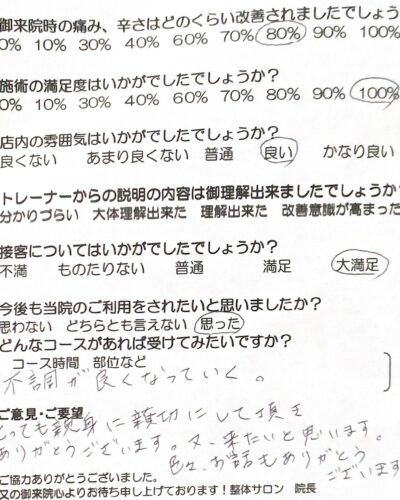 御来院時の痛み、辛さはどのくらい改善されましたでしょう
0% 10% 30% 40% 60% 70% 80% 90% 100%
施術の満足度はいかがでしたでしょうか?
0% 10% 30% 40% 60% 70% 80% 90% 100%
店内の雰囲気はいかがでしたでしょうか?
良くない あまり良くない 普通 良い かなり良い
トレーナーからの説明の内容は御理解出来ましたでしょうか?
分かりづらい 大体理解出来た 理解出来た 改善意識が高まった
接客についてはいかがでしたでしょうか?
不満 ものたりない 普通 満足 大満足
今後も当院のご利用をされたいと思いましたか?
思わない どちらとも言えない 思った
どんなコースがあれば受けてみたいですか?
コース時間 部位など
不調が良くなっていく。
ご意見・ご要望
とっても親身に親切にして頂き
ありがとうございます。又、来たいと思います。
色々、お話もありがとう
ございます
ご協力ありがとうございました。
又の御来院心よりお待ち申し上げております!整体サロン 院長